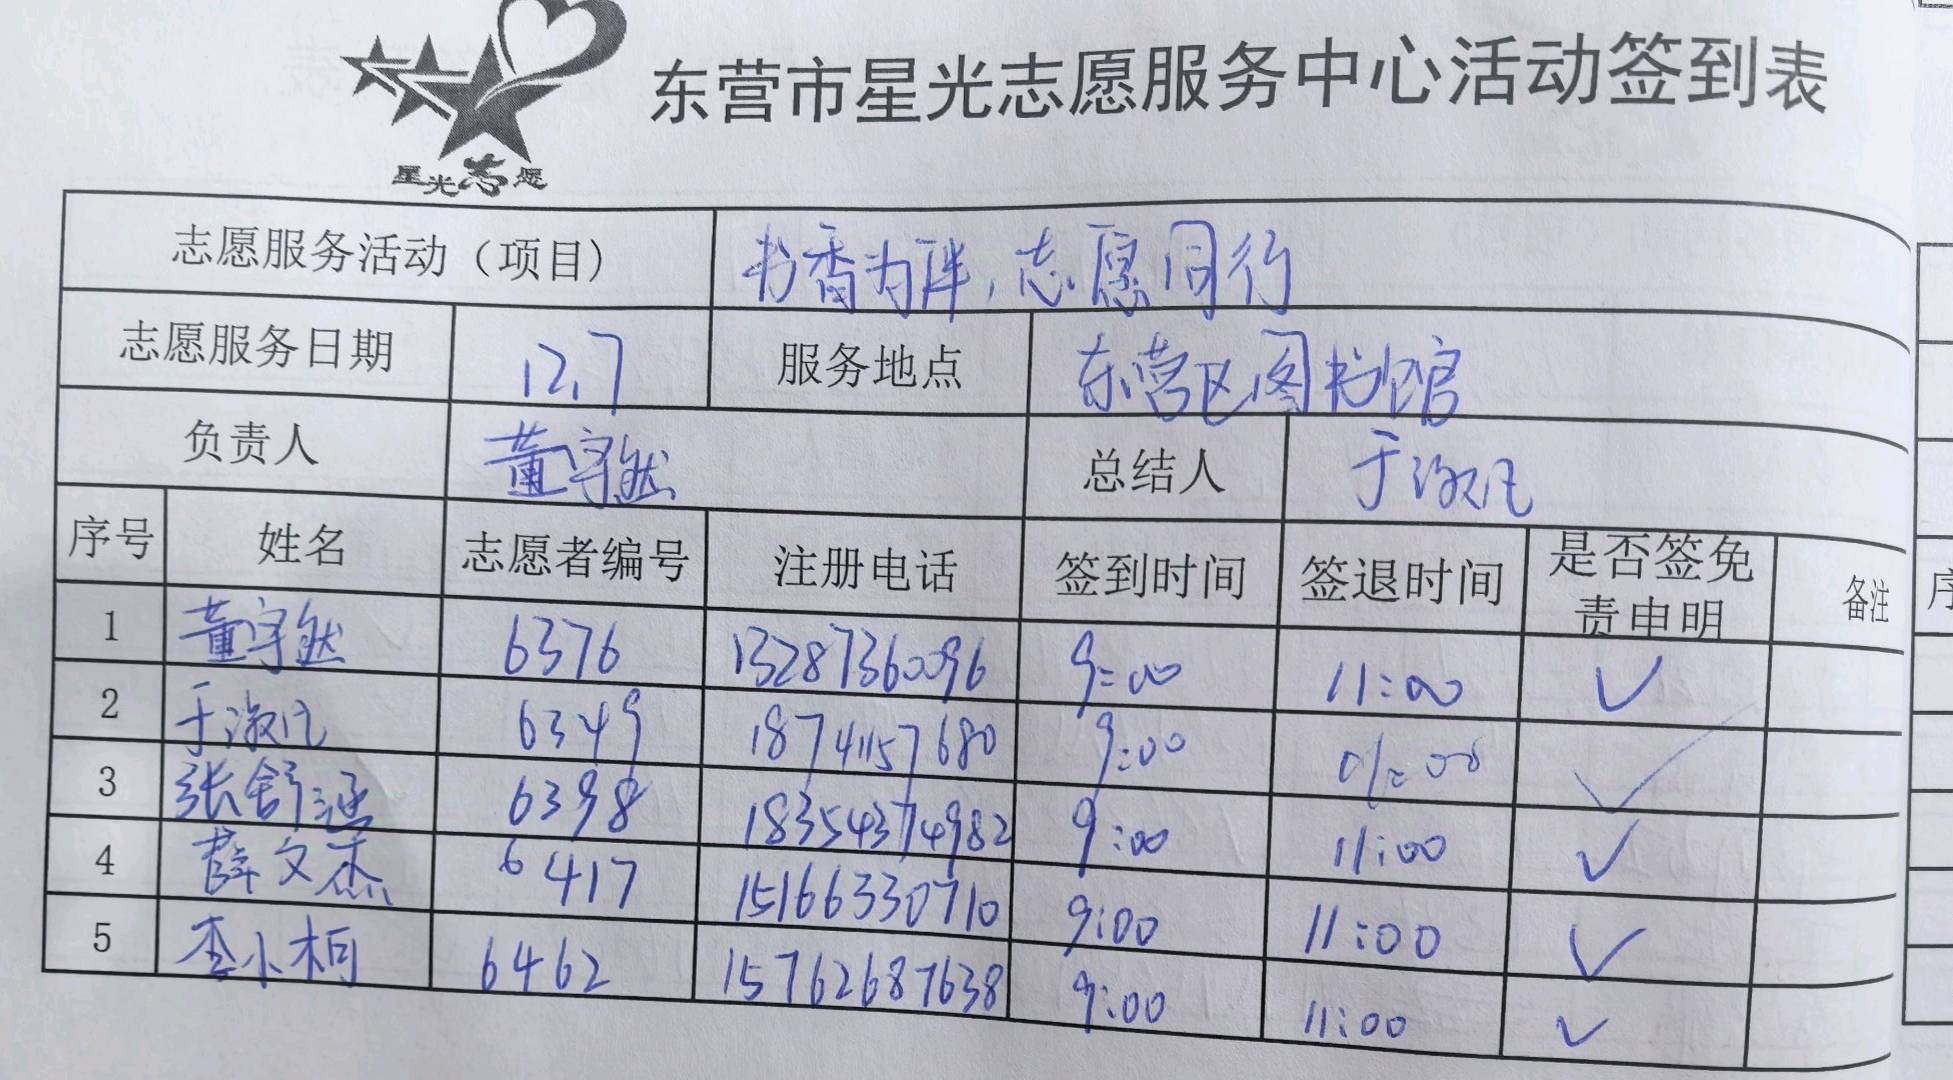 东营市星光志愿服务中心活动签到表
星光志愿
志愿服务活动（项目） 书香为伴,志愿同行
志愿服务日期 12.7 服务地点 东营区图书馆
负责人 董宇然 总结人 于淑凡
序号 姓名 志愿者编号 注册电话 签到时间 签退时间 是否签免责申明 备注
1 董宇然 6376 13287360096 9:00 11:00 ✓
2 于淑凡 6349 18741157680 9:00 ✓
3 张舒涵 6398 18354374982 9:00 11:00 ✓
4 薛文杰 6417 15166330710 9:00 11:00 ✓
5 李小桐 6462 15762687638 9:00 11:00 ✓
序